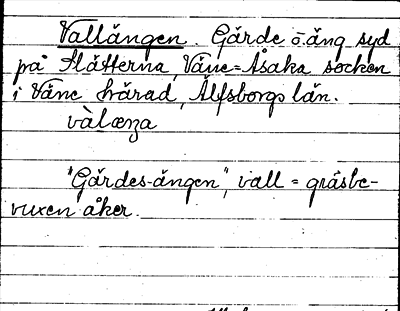 Vallängen. Gärde o. äng syd
på Slätterna, Väne-Åsaka socken
i Väne härad, Älfsborgs län.
vàlæŋa
"Gärdes-ängen", vall = gräsbe-
vuxen åker.